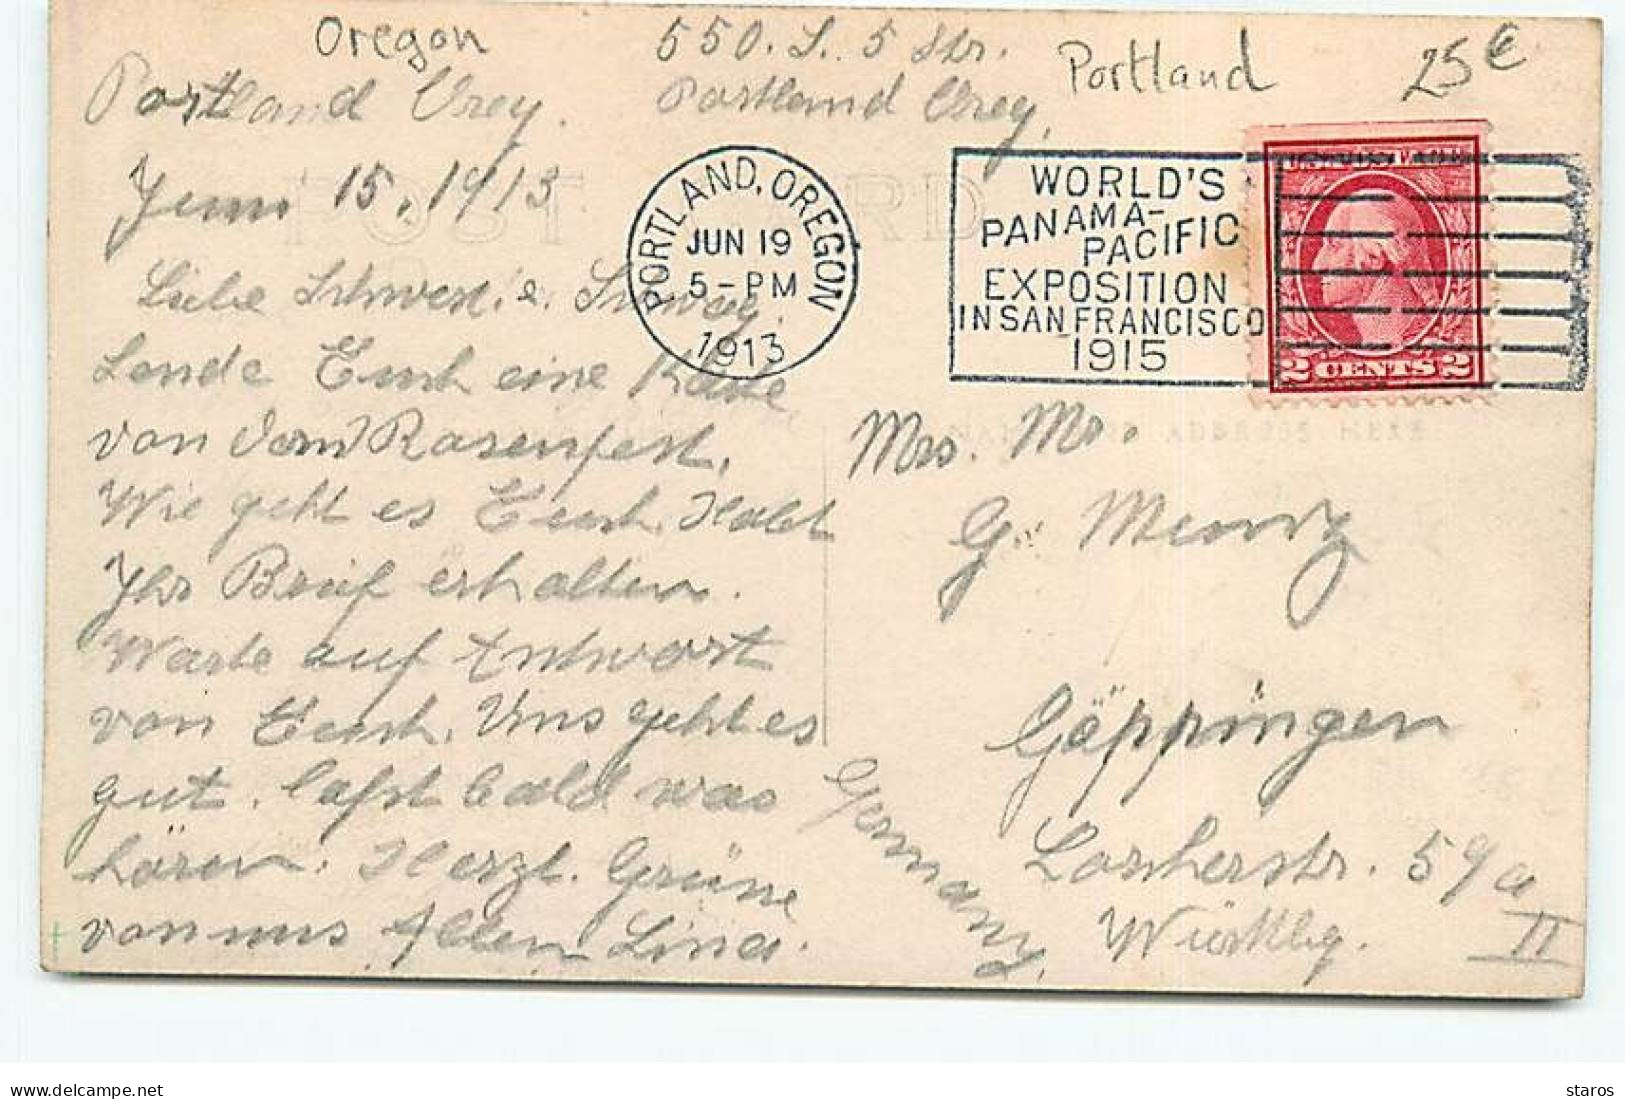 Oregon
550. S. 5 Str.
Portland
25€
Portland Oreg.
Portland Oreg.
Juni 15, 1913
PORTLAND, OREGON
JUN 19
5-PM
1913
WORLD'S
PANAMA-
PACIFIC
EXPOSITION
IN SAN FRANCISCO
1915
U.S. POSTAGE
2 CENTS 2
POST CARD
Liebe Schwest. &. Schwag.
Sende Euch eine Karte
von dem Rosenfest.
Wie geht es Euch. Habt
Ihr Brief erhalten.
Warte auf Antwort
von Euch. Uns geht es
gut. lasst bald was
hören. Herzl. Grüsse
von uns Allen Lina.
NAME AND ADDRESS HERE
Mrs. Mr.
G.
Göppingen
Lorcherstr. 59a
II
Württbg.
Germany.
delcampe.net
staros